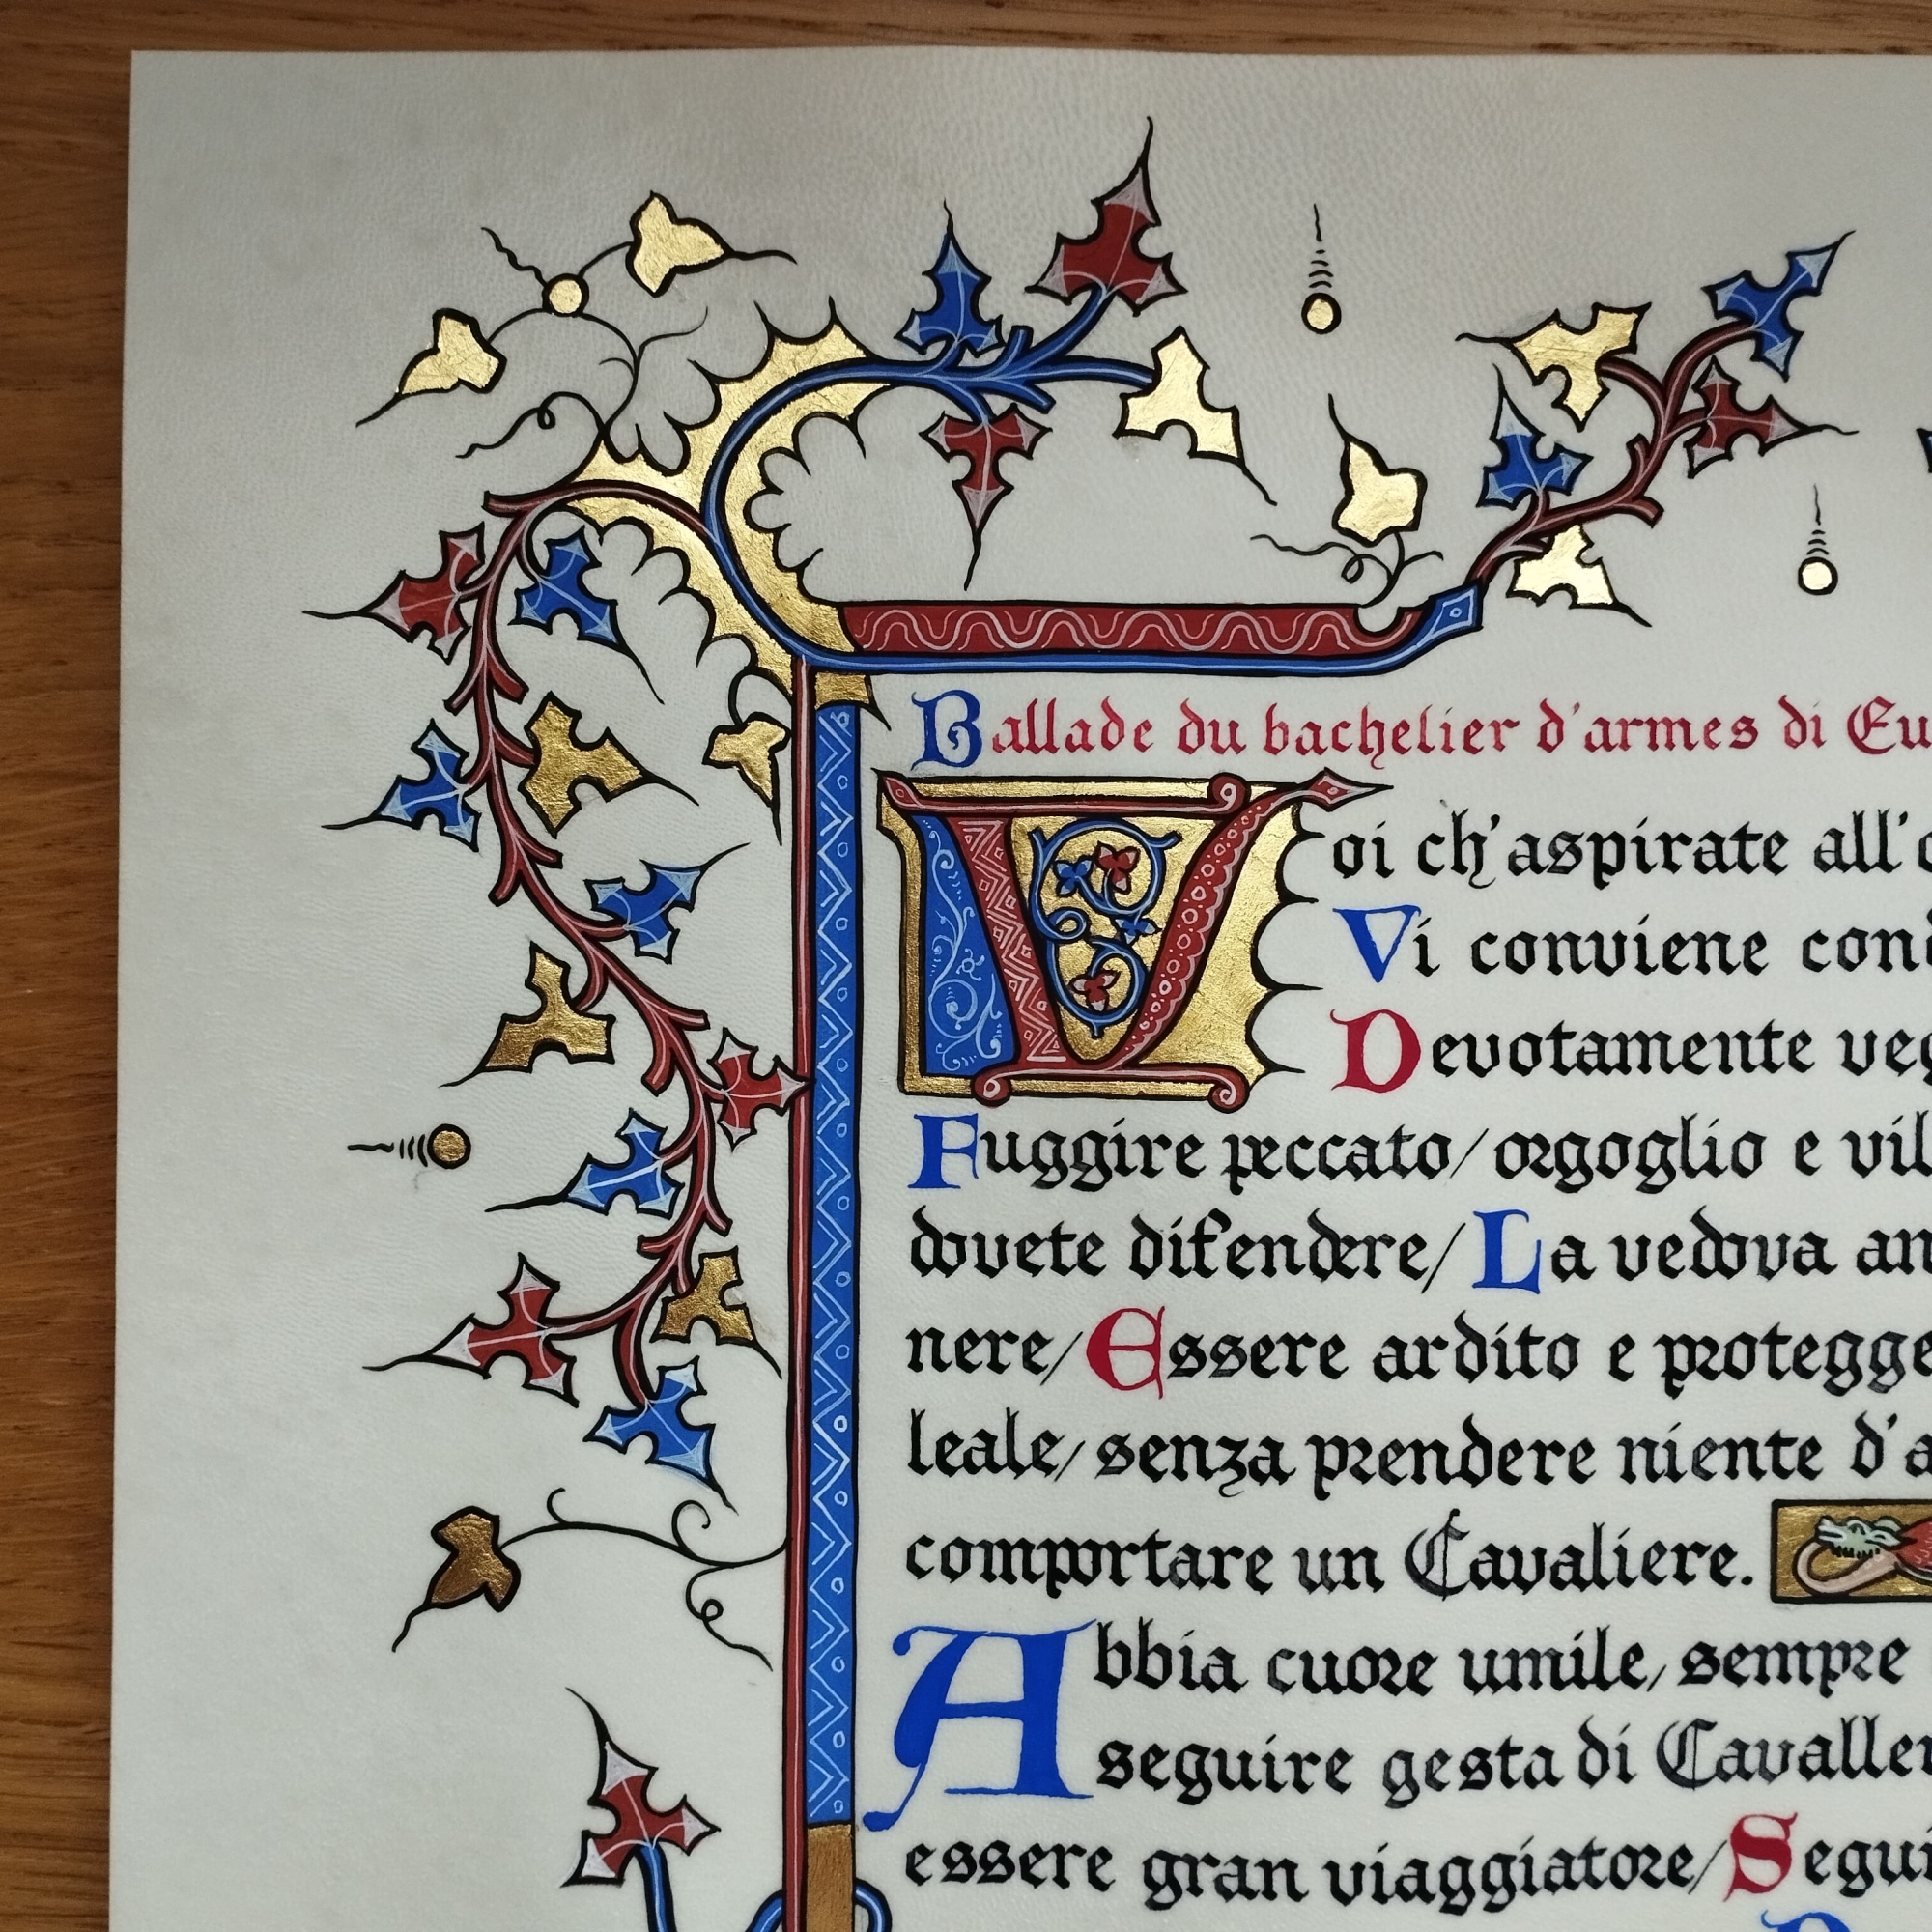 Ballade du bachelier d'armes di Eu
Voi ch'aspirate all'o
Vi conviene con
Devotamente veg
Fuggire peccato/orgoglio e vil
dovete difendere/La vedova an
nere/Essere ardito e protegge
leale/senza prendere niente d'a
comportare un Cavaliere.
Abbia cuore umile/sempre
seguire gesta di Cavaller
essere gran viaggiatore/Segui